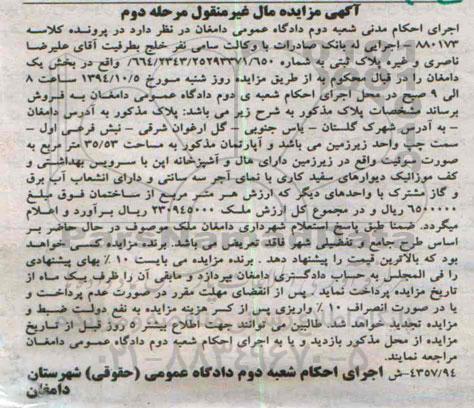 آگهی مزایده مال غیرمنقول مرحله دوم
اجرای احکام مدنی شعبه دوم دادگاه عمومی دامغان در نظر دارد در پرونده کلاسه
۸۸۰۱۷۳ - اجرایی له بانک صادرات با وکالت سامی نفر خلج بطرفیت آقای علیرضا
ناصری و غیره پلاک ثبتی به شماره ۶۶۴/۲۳۴۳/۲۵۲۹۳۳۷۱/۶۵۰ واقع در بخش یک
دامغان را در قبال محکوم به از طریق مزایده روز شنبه مورخ ۱۳۹۴/۱۰/۵ ساعت ۸
الی ۹ صبح در محل اجرای احکام شعبه ی دوم دادگاه عمومی دامغان به فروش
برساند مشخصات پلاک مذکور به شرح زیر می باشد: پلاک مذکور به آدرس دامغان
- به آدرس شهرک گلستان - یاس جنوبی - گل ارغوان شرقی - نبش فرعی اول -
سمت چپ واحد زیرزمین می باشد و آپارتمان مذکور به مساحت ۳۵/۵۳ متر مربع به
صورت موقیت واقع در زیرزمین دارای هال و آشپزخانه اپن با سرویس بهداشتی و
کف موزائیک دیوارهای سفید کاری با نمای آجر سه سانتی و دارای انشعاب آب برق
و گاز مشترک با واحدهای دیگر که ارزش هر متر مربع از ساختمان فوق مبلغ
۶۵۰۰۰۰۰ ریال و در مجموع کل ارزش ملک ۲۳۰۹۴۵۰۰۰ ریال برآورد و اعلام
میگردد. ضمنا طبق پاسخ استعلام شهرداری دامغان ملک موصوف در حال حاضر بر
اساس طرح جامع و تفضیلی شهر فاقد تعریض می باشد. برنده مزایده کسی خواهد
بود که بالاترین قیمت را پیشنهاد دهد . برنده مزایده می بایست ۱۰٪ بهای پیشنهادی
را فی المجلس به حساب دادگستری دامغان بپردازد و مابقی آن را ظرف یک ماه از
تاریخ مزایده پرداخت نماید . پس از انقضای مهلت مقرر در صورت عدم پرداخت و
یا در صورت انصراف ۱۰٪ واریزی پس از کسر هزینه مزایده به نفع دولت ضبط و
مزایده تجدید خواهد شد. طالبین می توانند جهت اطلاع بیشتر ۵ روز قبل از تاریخ
مزایده از محل مذکور بازدید و یا به اجرای احکام شعبه دوم دادگاه عمومی دامغان
مراجعه نمایند.
۴۳۵۷/۹۴-ش اجرای احکام شعبه دوم دادگاه عمومی (حقوقی) شهرستان
دامغان
۰۲۱-۸۸۳۴۹۶۷۰-۵